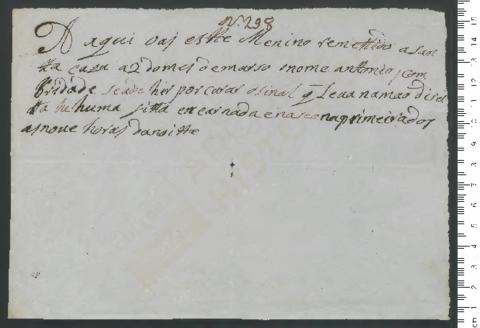 N. 298
Aqui vaj este Menino remetido a San
ta Caza a 2 do mes de marso o nome antonio, com
bridade se ade hir por cosar o sinal q Leva na mão direi
ta he huma fitta encarnada e naseo na primeira dos
as nove horas da noitte